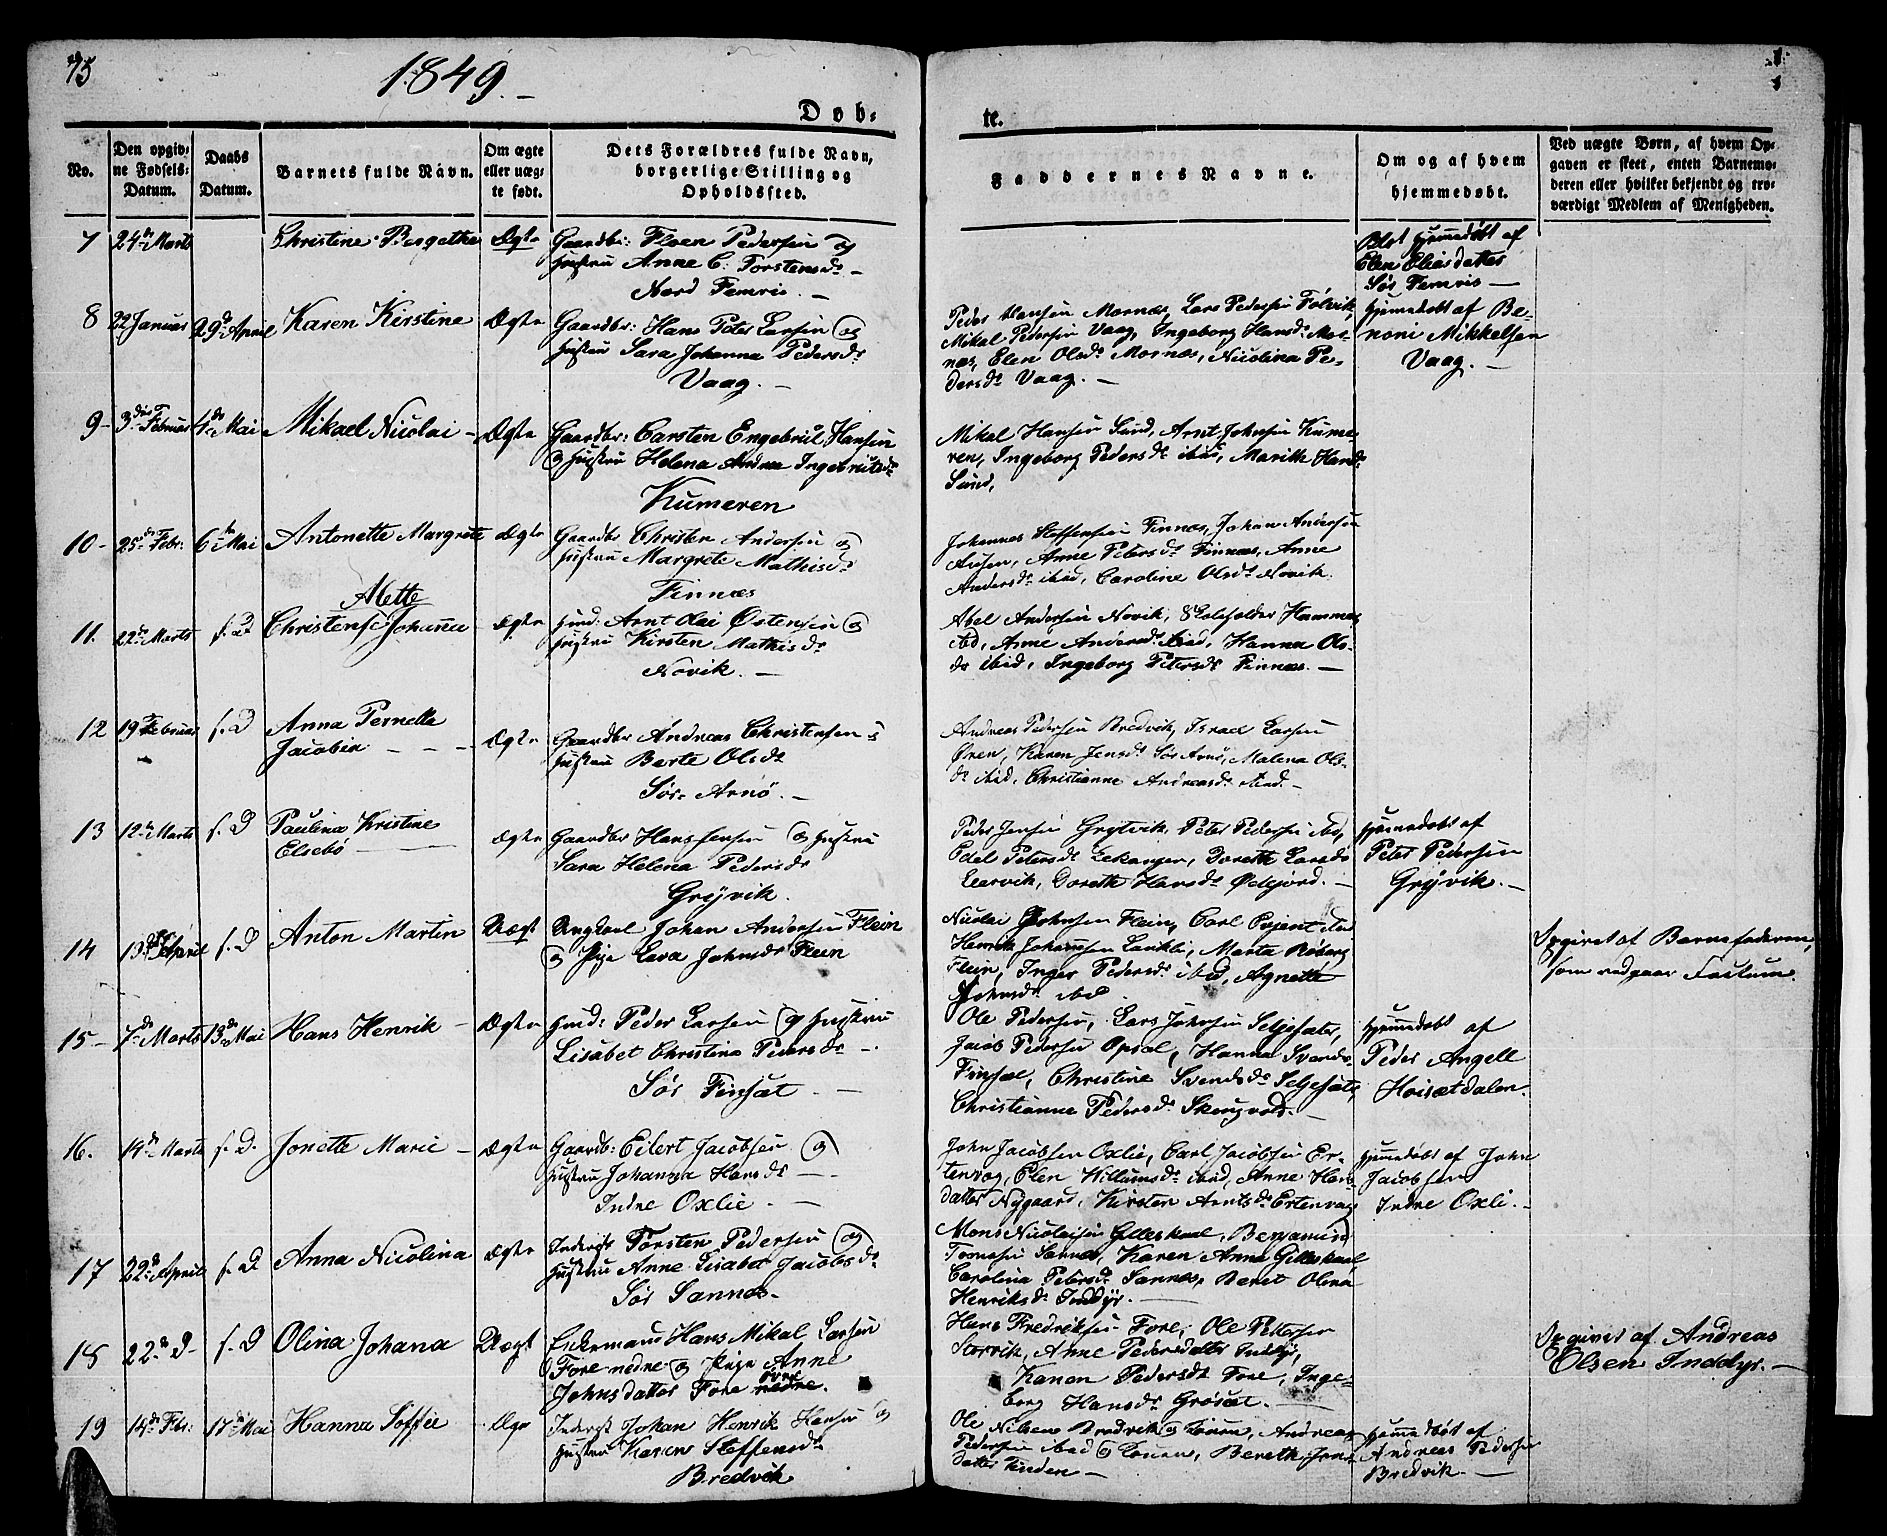 75
1849.
Døb-
te.
No.
Den opgiv-
ne Fødsels-
Datum.
Daabs
Datum.
Barnets fulde Navn.
Om ægte
eller uæg-
te født.
Dets Forældres fulde Navn,
borgerlige Stilling og
Opholdssted.
Faddernes Navne.
Om og af hvem
hjemmedøbt.
Ved uægte Børn, af hvem Op-
gaven er skeet, enten Barnemo-
deren eller hvilket bekjendt og tro-
værdigt Medlem af Menigheden.
7 24de Marts Christine Bergethe Ægte Gaardbr: Floen Pedersen og
Hustru Anne C: Torstensdr
Nord Femris.
hjemmedøbt af
Elen Eliasdatter
Sør Femris
8 22 Januar 29de April Karen Kirstine Ægte Gaardbr: Hans Peter Larsen og
Hustru Sara Johanna Pedersdr
Vaag.
Peder Hansen Mornæs, Lars Pedersen Følvik,
Mikal Pedersen Vaag, Ingeborg Hansdr Mor-
næs, Elen Olsdr Mornæs, Nicolina Pe-
dersdr Vaag.
hjemmedøbt af Be-
noni Mikkelsen
Vaag.
9 3die Februar 4de Mai Mikael Nicolai Ægte Gaardbr: Carsten Engebriil Hansen
og Hustru Helena Andrea Ingebritsdr
Kumeren
Mikal Hansen Sund, Arnt Johnsen Kume-
ren, Ingeborg Pedersdr ibid, Marith Hansdr
Sund,
10 25de Febr: 6te Mai Antonette Margrete Ægte Gaardbr Christen Andersen og
Hustru Margrete Mathisdr
Finnæs
Johannes Steffensen Finnæs, Johan Andersen
Anne Petersdr Finnæs, Anne
Andersdr ibid, Caroline Olsdr Novik.
11. 22de Marts s. D Alette
Christense Johanna Ægte Huusd: Arnt Olai Østensen og
Hustru Kirsten Mathisdr
Novik.
Abel Andersen Novik, Skoleholder Hammer
ibid, Anne Andersdr ibid, Hanna Ols-
dr ibid, Ingeborg Petersdr Finnæs.
12 19 Februar s. D Anna Pernella
Jacobin Ægte Gaardbr Andreas Christensen
Hustru Berte Olsdr
Sør Arnø.
Andreas Pedersen Bredvik, Israel Larsen
Øren, Karen Jensdr Sør Arnø, Malena Ols-
dr ibid, Christianne Andreasdr ibid.
13 12te Marts s. D Paulina Kristine
Elsebø Ægte Gaardbr Hans Jensen og Hustru
Sara Helena Pedersdr
Grÿvik.
Peder Jensen Grytvik, Peter Pedersen ibid,
Edel Petersdr Dorethe Larsdr
Dorethe Hansdr
hjemmedøbt af
Peter Pedersen
Grÿvik.
14 13de April s. D Anton Martin Uægt Ungkarl Johan Andersen Flein
og Pige Lava Johnsdr Flein
Nicolai Johnsen Flein, Carl
Henrik Johannsen Marta
Flein, Inger Pedersdr ibid, Agnethe
Johnsdr ibid
Opgivet af Barnefaderen,
som vedgaar Fostum.
15 7de Marts 13de Mai Hans Henrik Ægte Huusd: Peder Larsen og Hustru
Lisabet Christina Pedersdr
Sør Finsæt
Ole Pedersen, Lars Johnsen Seljesæter,
Jacob Pedersen Opsal, Hanna Svendsdr
Finsæt, Christine Svendsdr Seljesæt,
Christianne Pedersdr
hjemmedøbt af
Peder Angell
Hoisætdalen.
16. 14de Marts s. D. Jonette Marie Ægte Gaardb: Eilert Jacobsen og
Hustru Johanna Hansdr
Indre Oxlie
John Jacobsen Oxlie, Carl Jacobsen Er-
tenvog, Elen Willumsdr ibid, Anne Hans-
datter Nygaard, Kirsten Arntsdr Ertenvog
hjemmedøbt af John
Jacobsen
Indre Oxli.
17 22de April s. D. Anna Nicolina Ægte Inderst Torsten Pedersen og
Hustru Anne Lisabet Jacobsdr
Sør Sannæs.
Mons Nicolaisen Gilleskaal, Benjamin
Tomesen Sannæs, Karen Anna Gilleskaal
Carolina Petersdr Sannæs, Beret Olina
Henriksdr Inddyr.
18 22de D s. D Olina Johana Uægt Enkemand Hans Mikal Larsen
Fore nedre og Pige Anne
Johnsdatter Fore øvre nedre.
Hans Fredriksen Fore, Ole Pettersen
Storvik, Anne Pedersdatter Inddyr,
Karen Pedersdr Fore, Inge-
borg Hansdr Grøsæt.
Opgivet af Andreas
Olsen Inddyr.
19 14de Febr: 17de Mai Hanna Soffie Ægte Inderst Johan Henrik Hansen og
Hustru Karen Steffensdr
Bredvik
Ole Nilsen Bredvik og Konen, Andreas
Pedersen ibid og Konen, Berethe Jens-
datter Finden
hjemmedøbt af
Andreas Pedersen
Bredvik.